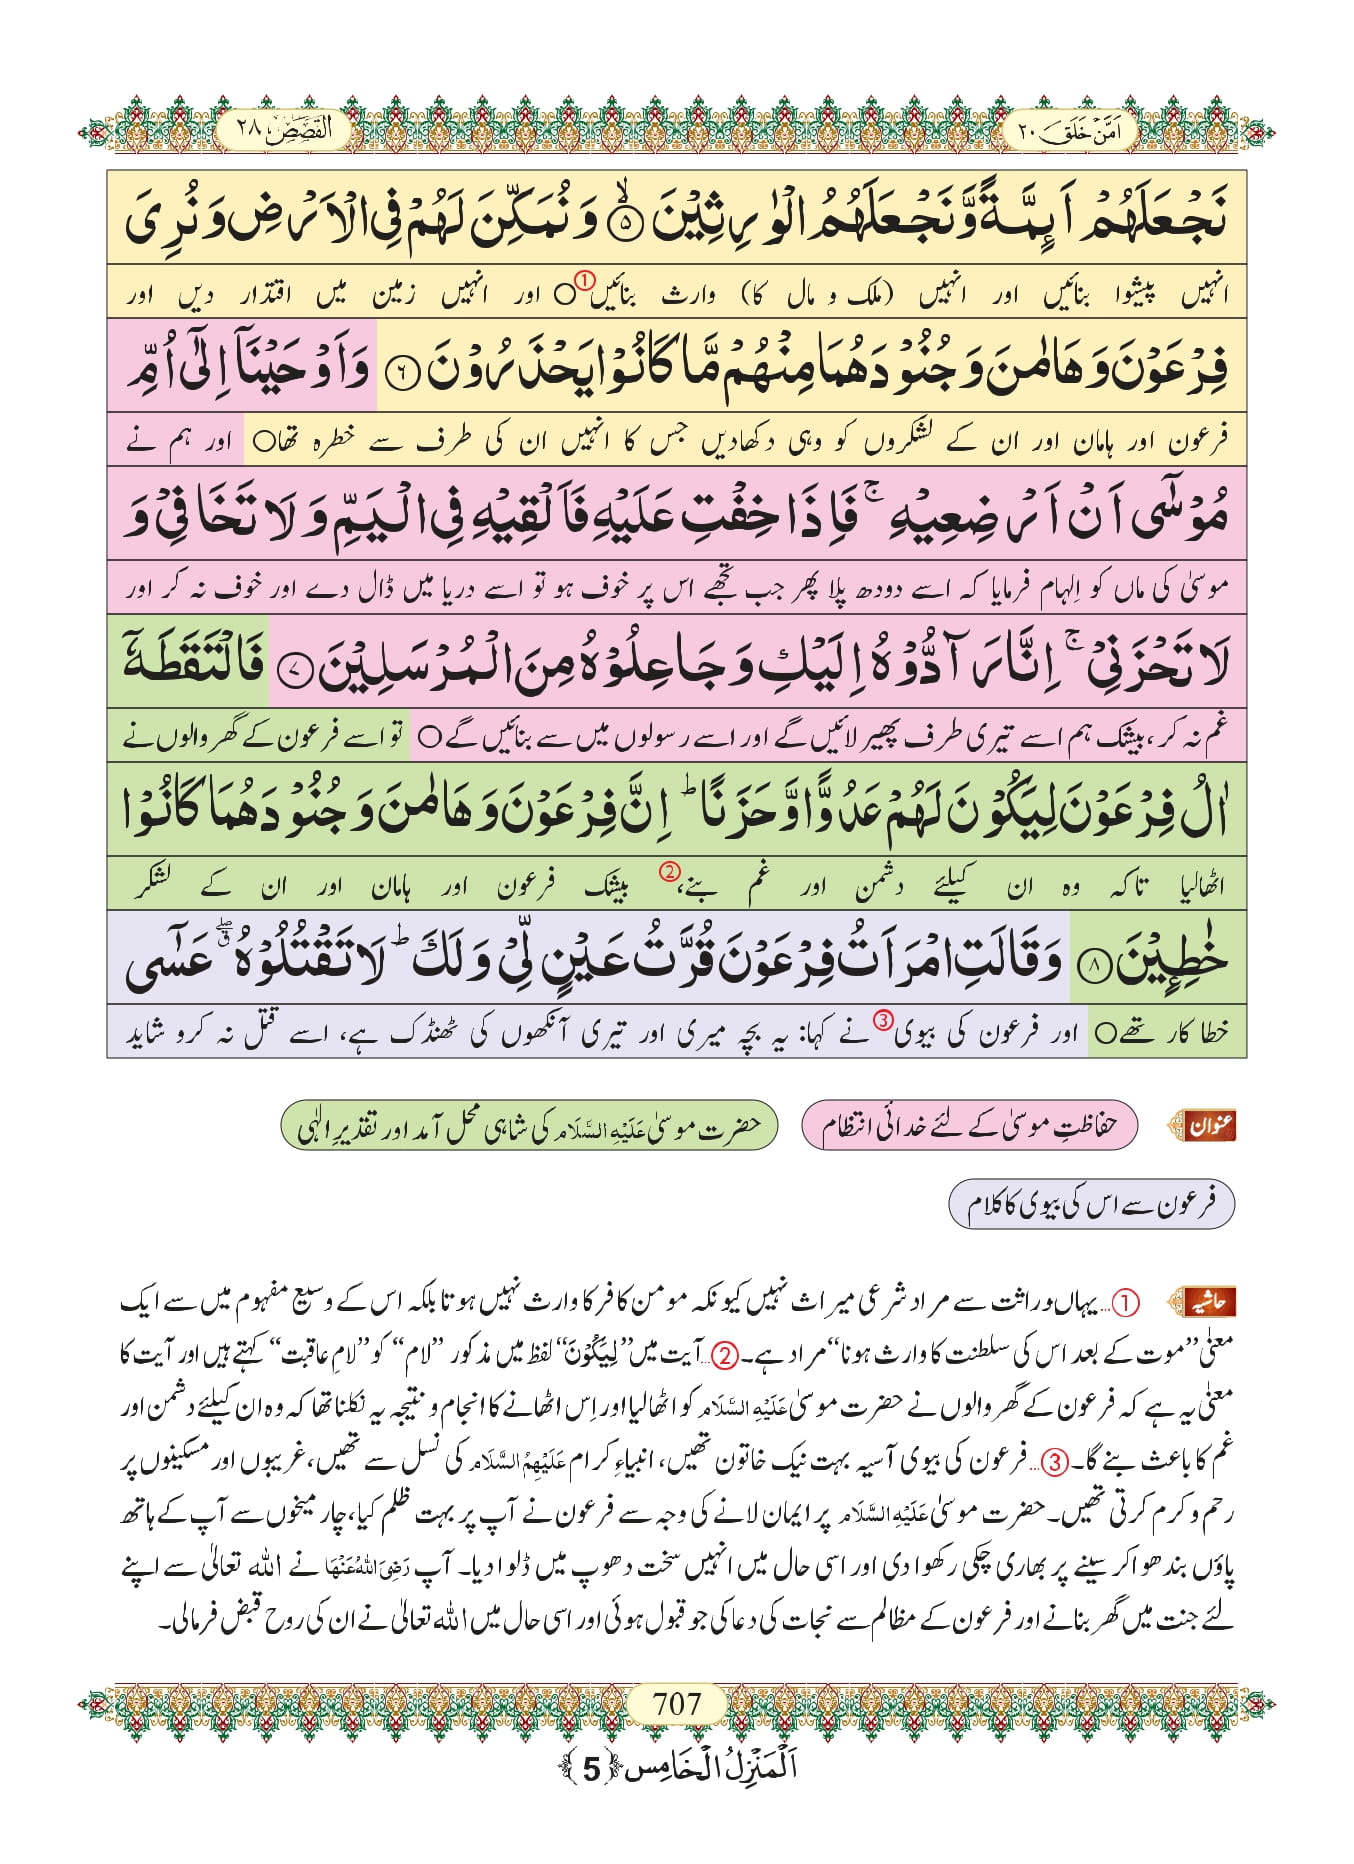 اَمَّنْ خَلَقَ ۲۰
القَصَص ۲۸
نَجْعَلَهُمْ اَىِٕمَّةً وَّ نَجْعَلَهُمُ الْوٰرِثِیْنَۙ ۵ وَ نُمَكِّنَ لَهُمْ فِی الْاَرْضِ وَ نُرِیَ
انہیں پیشوا بنائیں اور انہیں (ملک و مال کا) وارث بنائیں① ○ اور انہیں زمین میں اقتدار دیں اور
فِرْعَوْنَ وَ هَامٰنَ وَ جُنُوْدَهُمَا مِنْهُمْ مَّا كَانُوْا یَحْذَرُوْنَ ۶ وَ اَوْحَیْنَاۤ اِلٰۤى اُمِّ
فرعون اور ہامان اور ان کے لشکروں کو وہی دکھادیں جس کا انہیں ان کی طرف سے خطرہ تھا○ اور ہم نے
مُوْسٰۤى اَنْ اَرْضِعِیْهِۚ فَاِذَا خِفْتِ عَلَیْهِ فَاَلْقِیْهِ فِی الْیَمِّ وَ لَا تَخَافِیْ وَ
موسیٰ کی ماں کو اِلہام فرمایا کہ اسے دودھ پلا پھر جب تجھے اس پر خوف ہو تو اسے دریا میں ڈال دے اور خوف نہ کر اور
لَا تَحْزَنِیْۚ اِنَّا رَآدُّوْهُ اِلَیْكِ وَ جَاعِلُوْهُ مِنَ الْمُرْسَلِیْنَ ۷ فَالْتَقَطَهٗۤ
غم نہ کر، بیشک ہم اسے تیری طرف پھیر لائیں گے اور اسے رسولوں میں سے بنائیں گے ○ تو اسے فرعون کے گھر والوں نے
اٰلُ فِرْعَوْنَ لِیَكُوْنَ لَهُمْ عَدُوًّا وَّ حَزَنًاؕ اِنَّ فِرْعَوْنَ وَ هَامٰنَ وَ جُنُوْدَهُمَا كَانُوْا
اٹھالیا تاکہ وہ ان کیلئے دشمن اور غم بنے،② بیشک فرعون اور ہامان اور ان کے لشکر
خٰطِـٕیْنَ ۸ وَ قَالَتِ امْرَاَتُ فِرْعَوْنَ قُرَّتُ عَیْنٍ لِّیْ وَ لَكَؕ لَا تَقْتُلُوْهُ ﳓ عَسٰۤى
خطا کار تھے○ اور فرعون کی بیوی③ نے کہا: یہ بچہ میری اور تیری آنکھوں کی ٹھنڈک ہے، اسے قتل نہ کرو شاید
عنوان حفاظتِ موسیٰ کے لئے خدائی انتظام حضرت موسیٰ عَلَیْهِ السَّلَام کی شاہی محل آمد اور تقدیرِ الٰہی
فرعون سے اس کی بیوی کا کلام
حاشیہ ①...یہاں وراثت سے مراد شرعی میراث نہیں کیونکہ مومن کافر کا وارث نہیں ہوتا بلکہ اس کے وسیع مفہوم میں سے ایک
معنٰی ”موت کے بعد اس کی سلطنت کا وارث ہونا“ مراد ہے۔ ②...آیت میں ”لِیَكُوْنَ“ لفظ میں مذکور ”لام“ کو ”لامِ عاقبت“ کہتے ہیں اور آیت کا
معنٰی یہ ہے کہ فرعون کے گھر والوں نے حضرت موسیٰ عَلَیْهِ السَّلَام کو اٹھالیا اور اِس اٹھانے کا انجام و نتیجہ یہ نکلنا تھا کہ وہ ان کیلئے دشمن اور
غم کا باعث بنے گا۔ ③...فرعون کی بیوی آسیہ بہت نیک خاتون تھیں، انبیاءِ کرام عَلَیْهِمُ السَّلَام کی نسل سے تھیں، غریبوں اور مسکینوں پر
رحم و کرم کرتی تھیں۔ حضرت موسیٰ عَلَیْهِ السَّلَام پر ایمان لانے کی وجہ سے فرعون نے آپ پر بہت ظلم کیا، چار میخوں سے آپ کے ہاتھ
پاؤں بندھوا کر سینے پر بھاری چکی رکھوا دی اور اسی حال میں انہیں سخت دھوپ میں ڈلوا دیا۔ آپ رَضِیَ اللهُ عَنْهَا نے الله تعالیٰ سے اپنے
لئے جنت میں گھر بنانے اور فرعون کے مظالم سے نجات کی دعا کی جو قبول ہوئی اور اسی حال میں الله تعالیٰ نے ان کی روح قبض فرمالی۔
707
اَلْمَنْزِلُ الْخَامِس ﴿5﴾